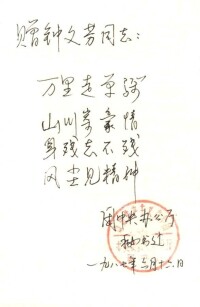 赠钟文芳同志:
万里走单骑
山川寄豪情
身残志不残
风尘见精神
团中央办公厅
一九八七年三月十六日